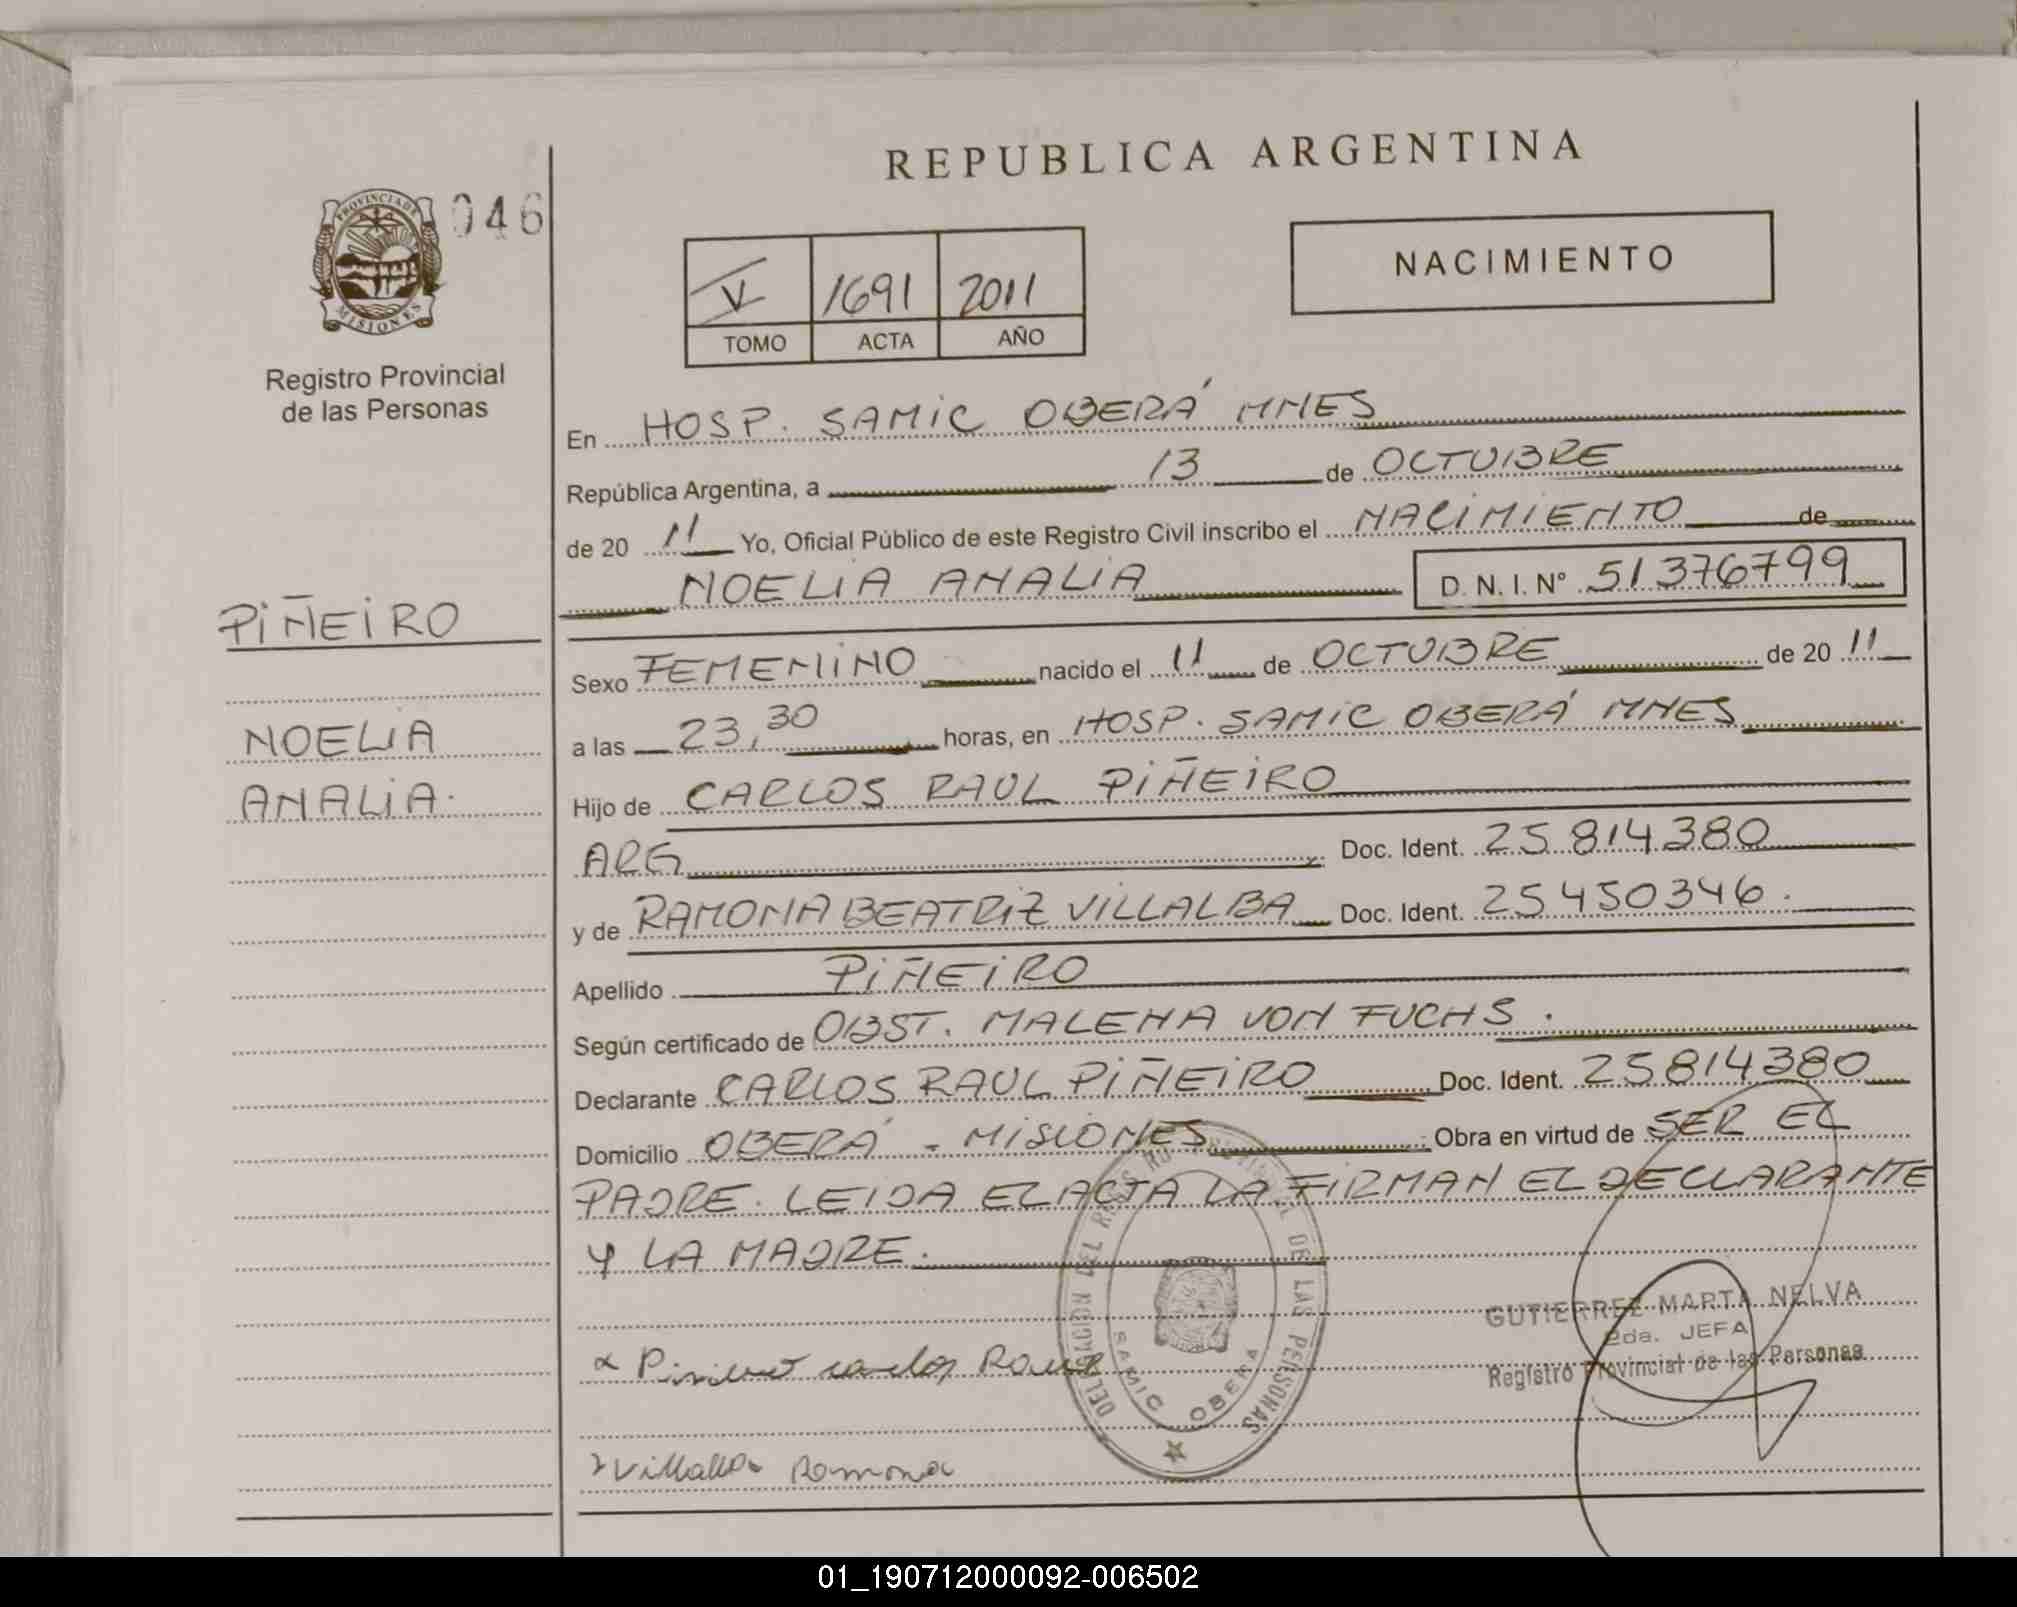 REPUBLICA ARGENTINA
PROVINCIA DE
MISIONES
046
Registro Provincial
de las Personas
V 1691 2011
TOMO ACTA AÑO
NACIMIENTO
En HOSP. SAMIC OBERÁ MNES
República Argentina, a 13 de OCTUBRE
de 20 11 Yo, Oficial Público de este Registro Civil inscribo el NACIMIENTO de
NOELIA ANALIA D. N. I. Nº 51376799
PIÑEIRO
NOELIA
ANALIA.
Sexo FEMENINO nacido el 11 de OCTUBRE de 20 11
a las 23,30 horas, en HOSP. SAMIC OBERÁ MNES
Hijo de CARLOS RAUL PIÑEIRO
ARG. Doc. Ident. 25 814 380
y de RAMONA BEATRIZ VILLALBA Doc. Ident. 25 450346.
Apellido PIÑEIRO
Según certificado de OBST. MALENA VON FUCHS.
Declarante CARLOS RAUL PIÑEIRO Doc. Ident. 25814380
Domicilio OBERÁ - MISIONES Obra en virtud de SER EL
PADRE. LEIDA EL ACTA LA FIRMAN EL DECLARANTE
Y LA MADRE.
DELEGACION DEL REGISTRO PROVINCIAL DE LAS PERSONAS
SAMIC OBERA
GUTIERREZ MARTA NELVA
2da. JEFA
Registro Provincial de las Personas
x Piñeiro carlos Raul
x Villalba Ramona
01_190712000092-006502